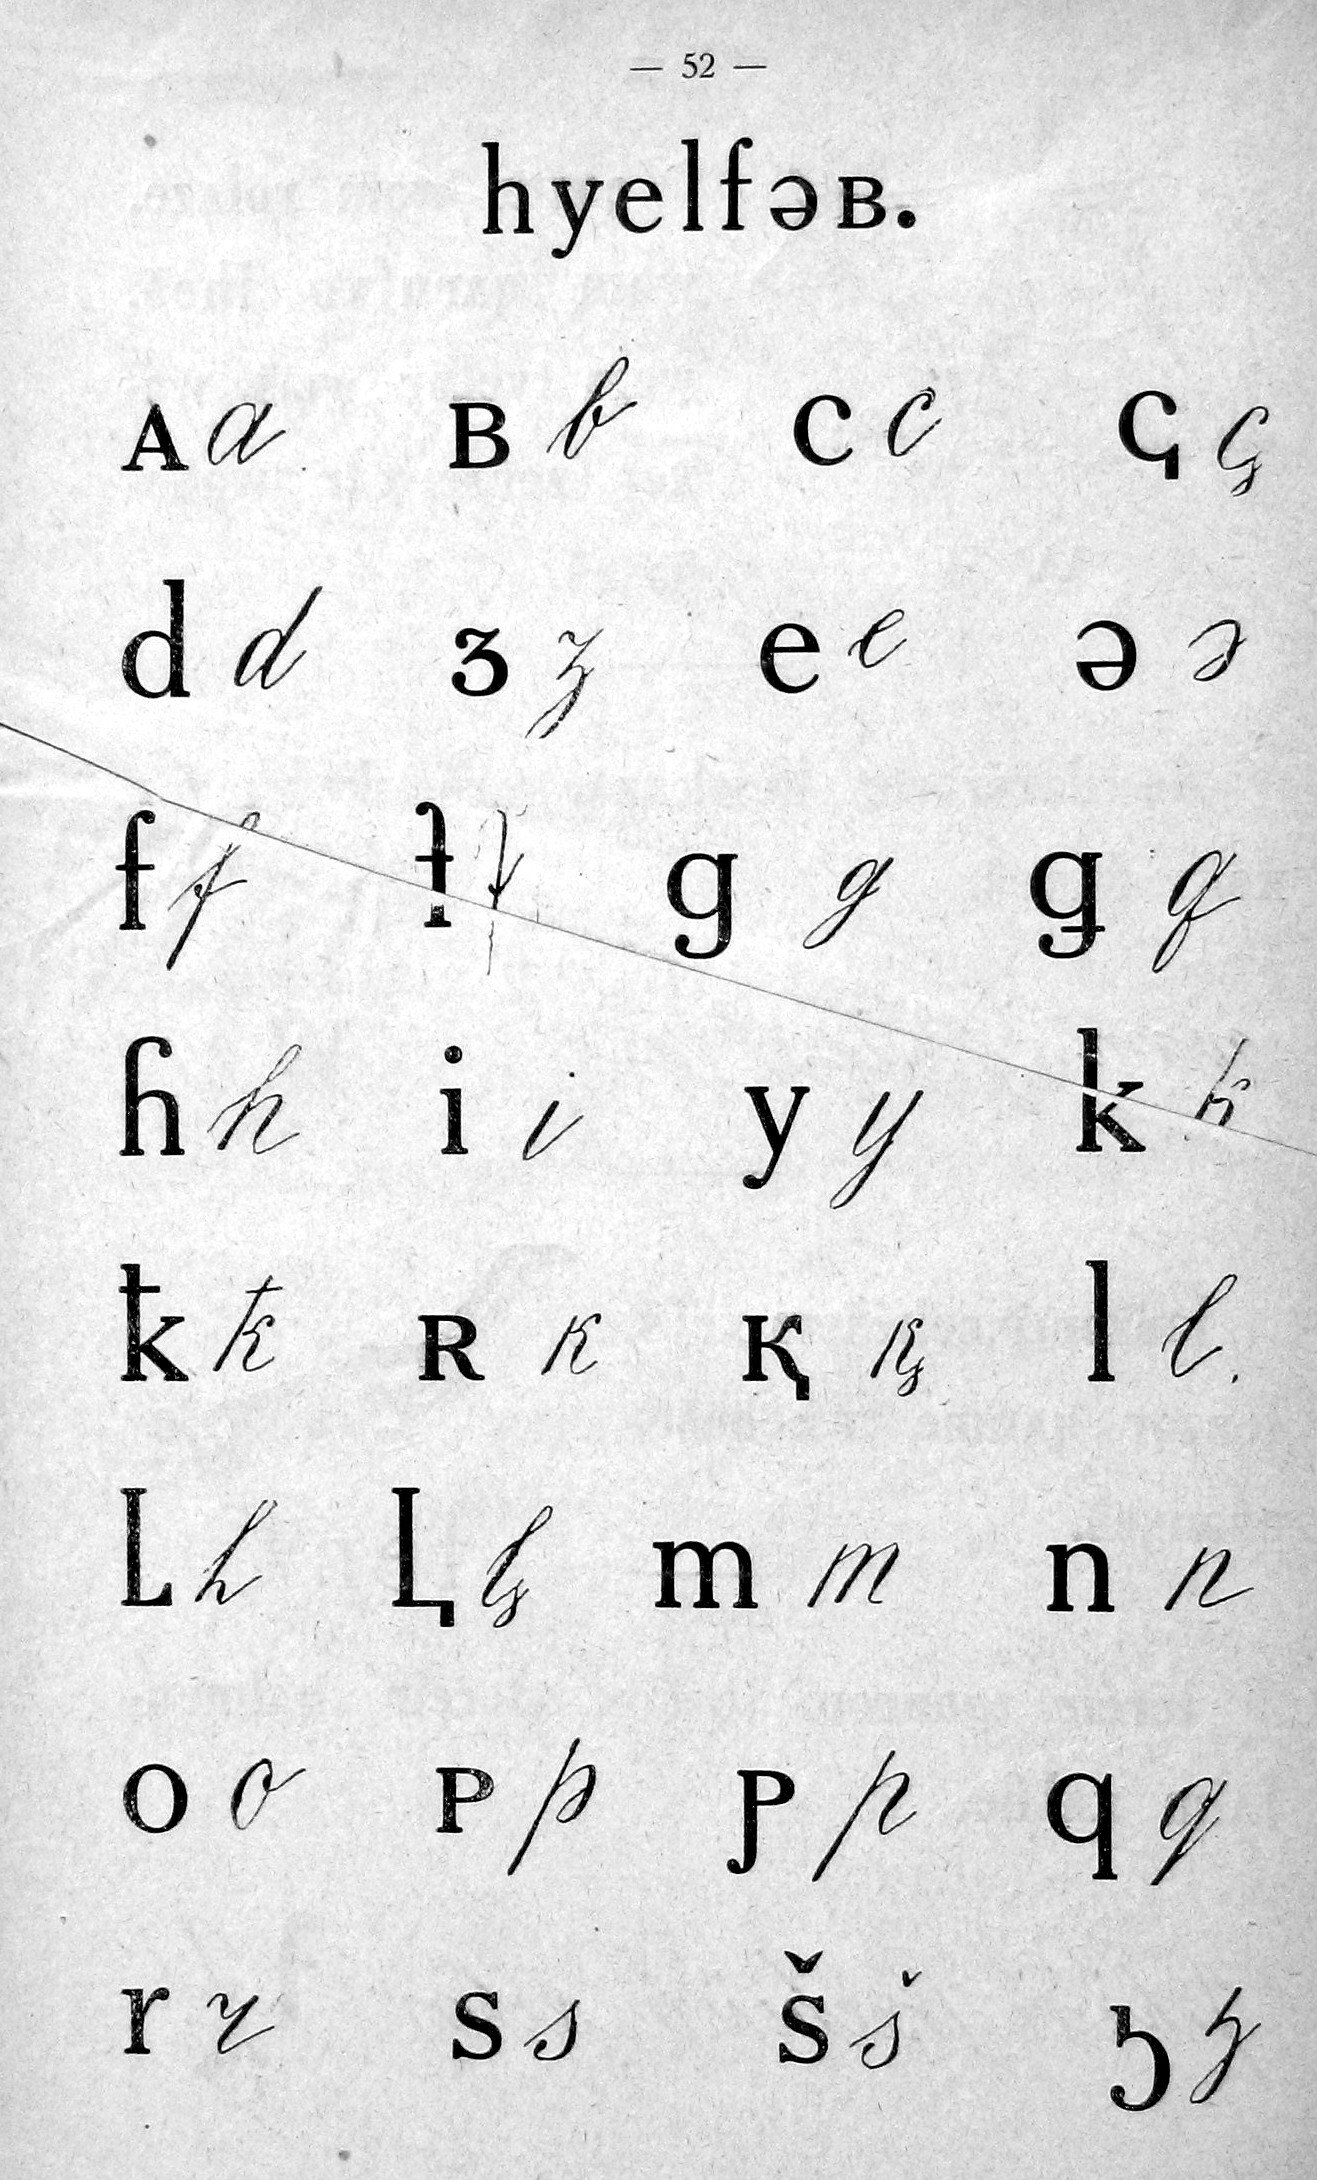 — 52 —
hyelfəʙ.
ᴀ a ʙ b c c ҁ ç
d d ɜ ʒ e e ə ə
f f ƚ g g ꞡ
ɦ h i i y y k k
ꝁ ꝁ ʀ к қ қ l l
L h Ⱡ m m n n
o o ᴘ p p q q
r r s s š š ҕ